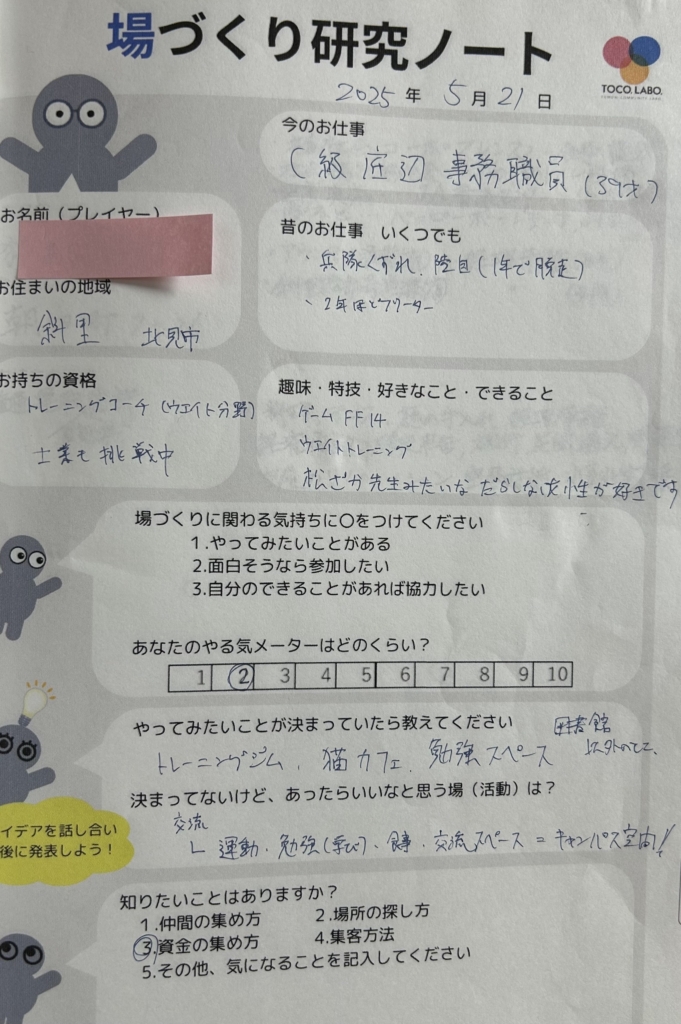 場づくり研究ノート
TOCO. LABO.
2025年 5月 21日
今のお仕事
C級 底辺 事務職員 (39才)
お名前(プレイヤー)
昔のお仕事 いくつでも
・兵隊くずれ、陸自(1年で脱走)
・2年ほどフリーター
お住まいの地域
斜里 北見市
お持ちの資格
トレーニングコーチ (ウエイト分野)
士業も挑戦中
趣味・特技・好きなこと・できること
ゲーム FF14
ウエイトトレーニング
松ざか先生みたいな だらしない女性が好きです
場づくりに関わる気持ちに〇をつけてください
1.やってみたいことがある
2.面白そうなら参加したい
3.自分のできることがあれば協力したい
あなたのやる気メーターはどのくらい?
1 2 3 4 5 6 7 8 9 10
やってみたいことが決まっていたら教えてください
トレーニングジム、猫カフェ、勉強スペース 図書館
以外のとこ、
決まってないけど、あったらいいなと思う場(活動)は?
交流
運動・勉強(学び)・食事・交流スペース=キャンパス空間!
イデアを話し合い
後に発表しよう!
知りたいことはありますか?
1.仲間の集め方 2.場所の探し方
3.資金の集め方 4.集客方法
5.その他、気になることを記入してください